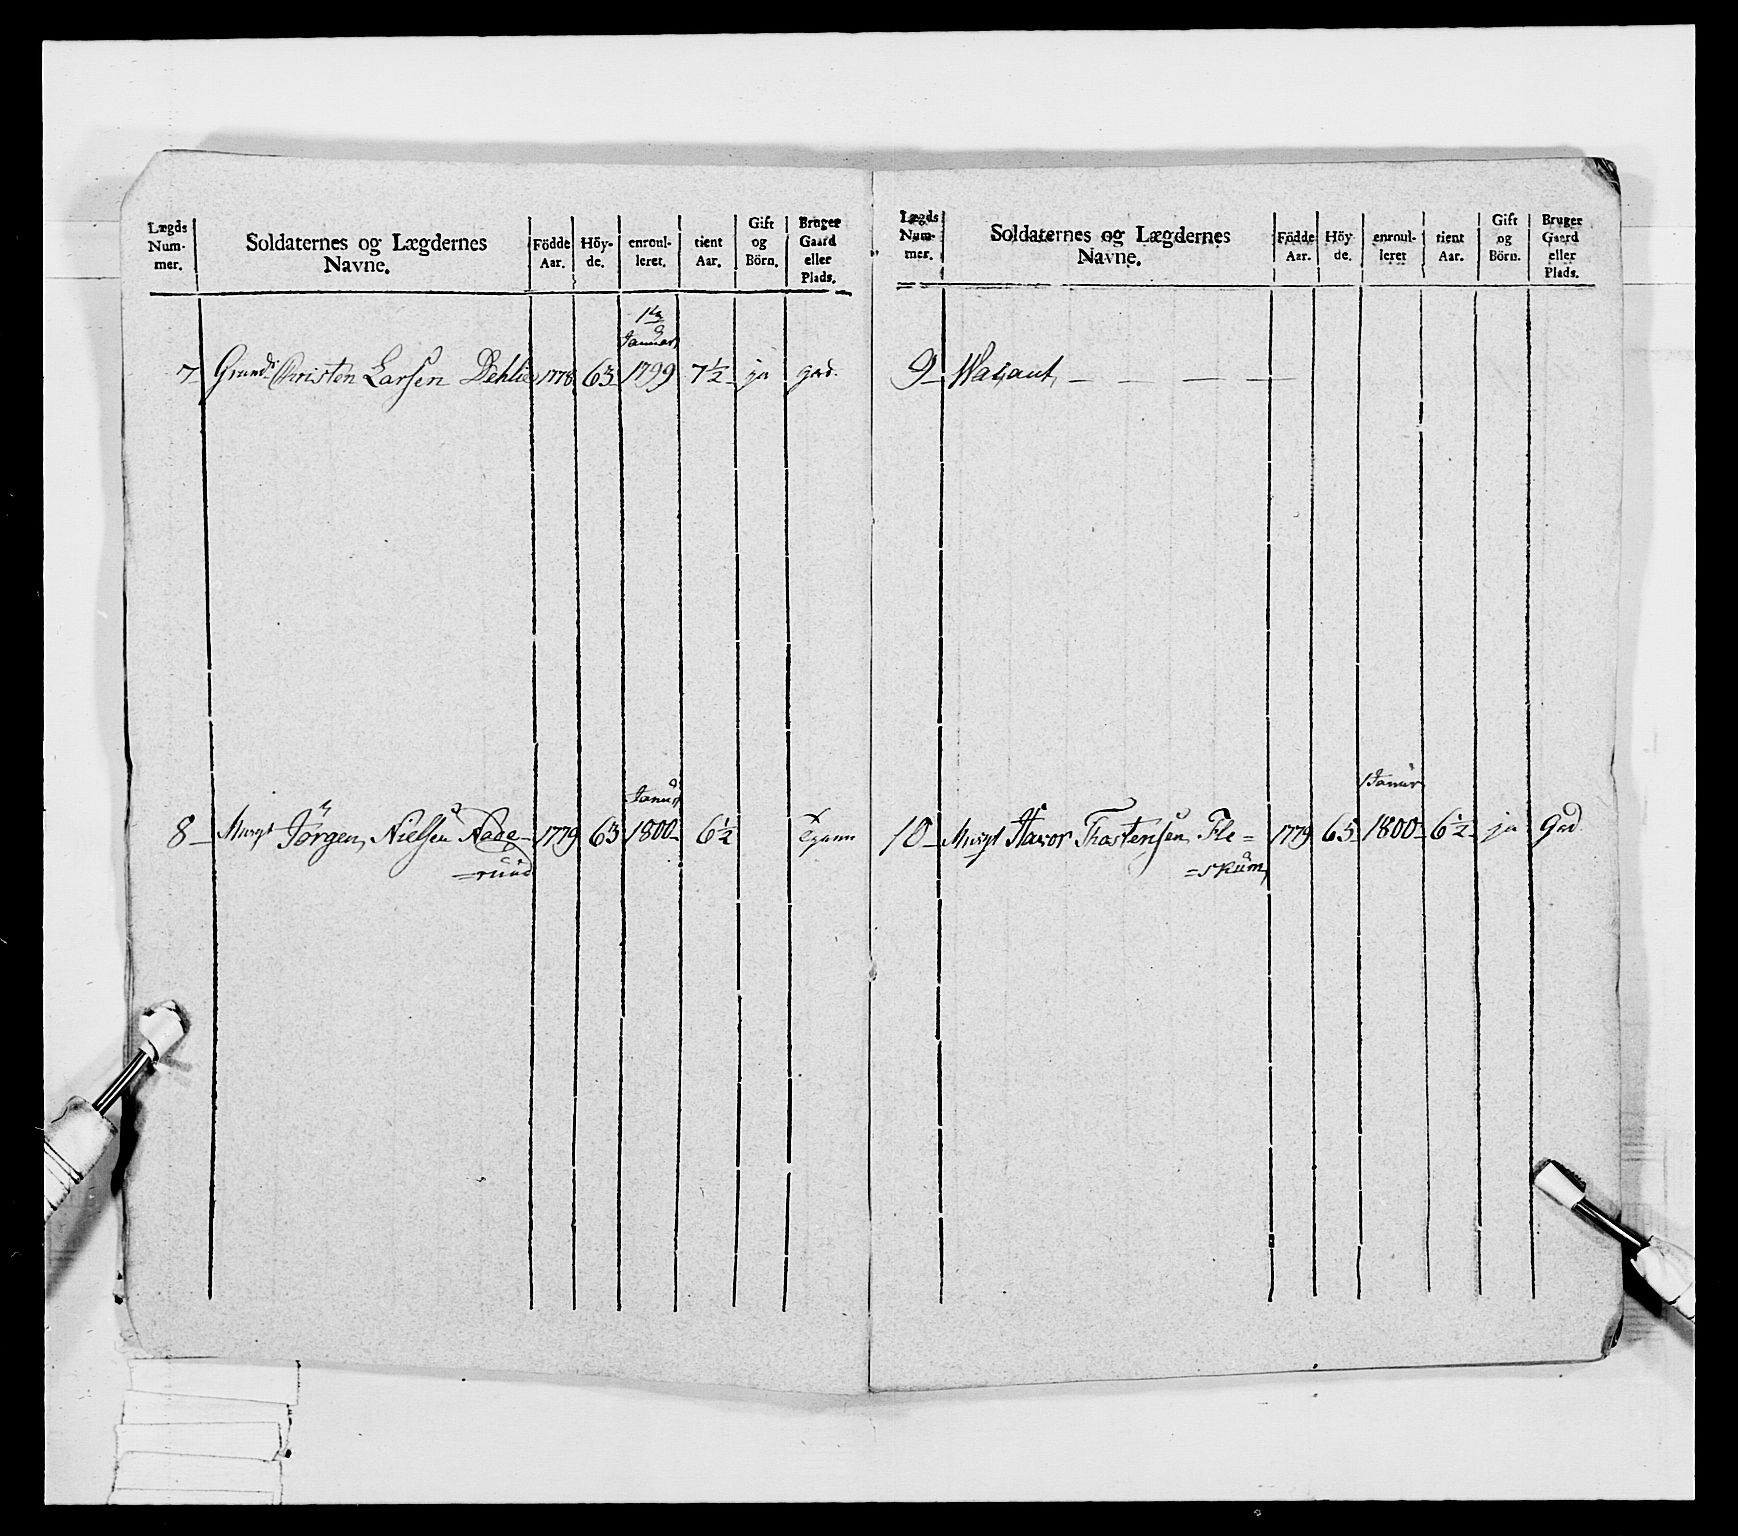 Lægds Num- mer. Soldaternes og Lægdernes Navne. Födde Aar. Höy- de. enroul- leret. tient Aar. Gift og Börn. Bruger Gaard eller Plads.
1te
Januar
7 Grund: Christen Larsen Dehlie 1778 63 1799 7½ ja gad.
Janur
8 Musqt Jörgen Nielsen 1779 63 1800 6½ Tjenn
=ruud
Lægds Num- mer. Soldaternes og Lægdernes Navne. Födde Aar. Höy- de. enroul- leret tient Aar. Gift og Börn. Bruger Gaard eller Plads.
9 Wacant
Janur
10 Musqt Havor Thostensen Fle= 1779 65 1800 6½ ja Gad
=skum